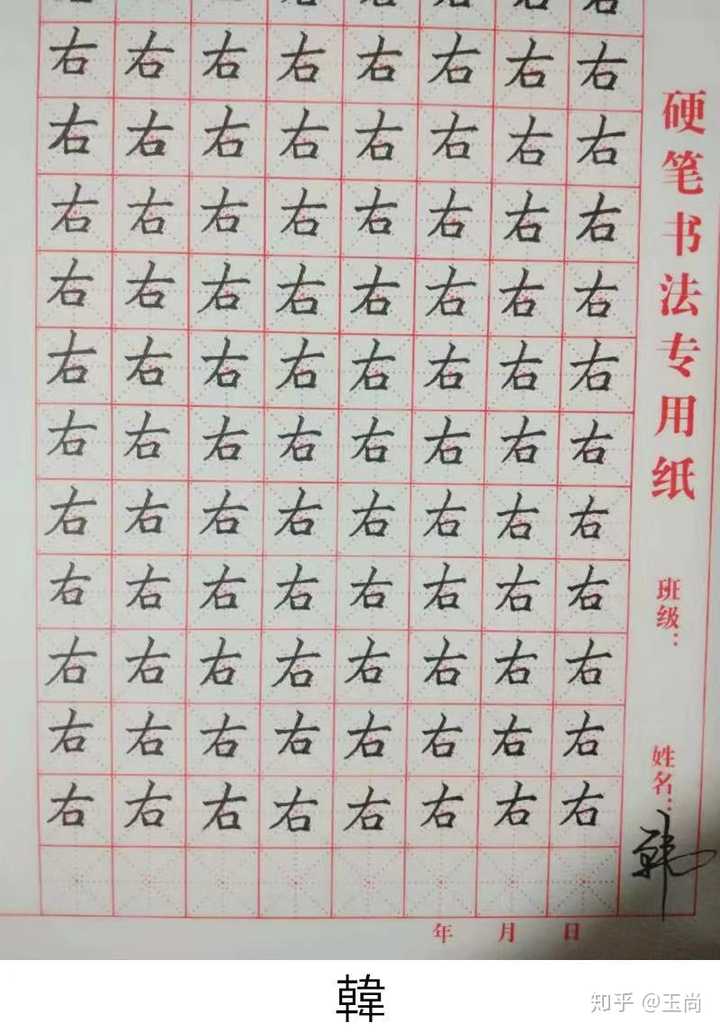 右右右右右右右右
右右右右右右右右
右右右右右右右右
右右右右右右右右
右右右右右右右右
右右右右右右右右
右右右右右右右右
右右右右右右右右
右右右右右右右右
右右右右右右右右
右右右右右右右右
硬笔书法专用纸
班级：
姓名：韩
年 月 日
韓
知乎 @玉尚